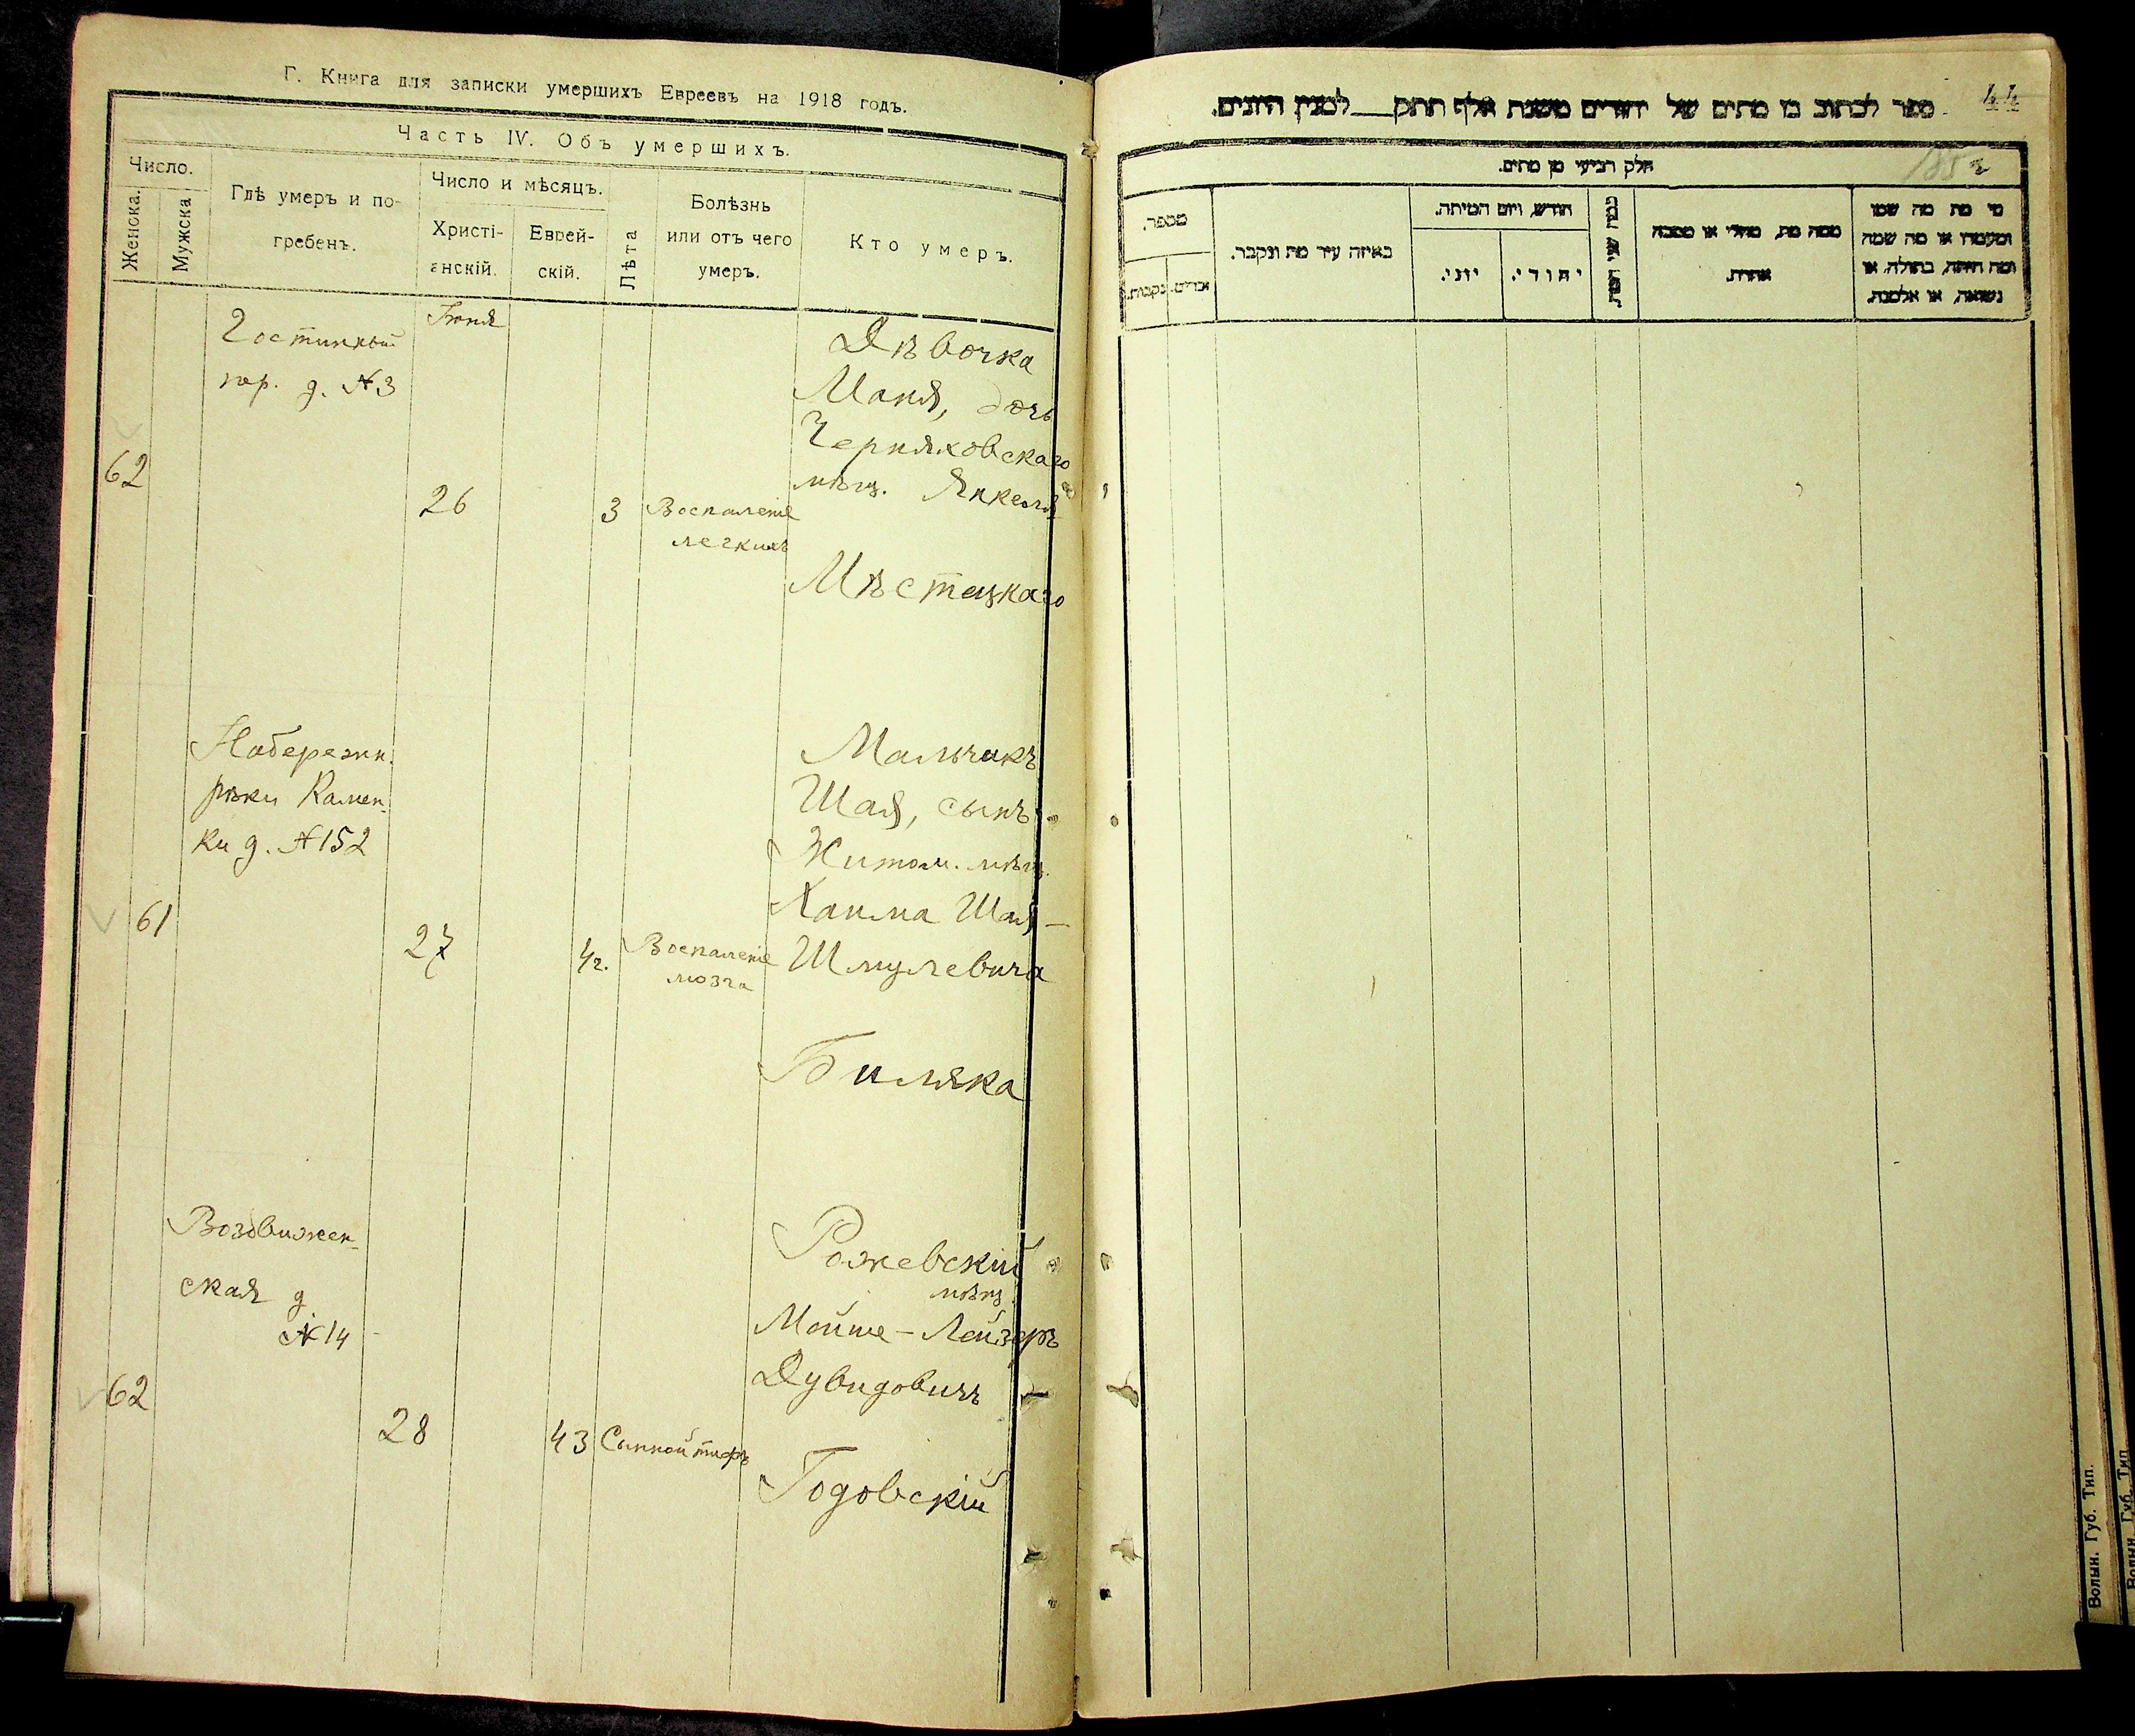 Г. Книга для записки умершихъ Евреевъ на 1918 годъ.
Часть IV. Объ умершихъ.
Число.
Женска.
Мужска
Гдѣ умеръ и по-
гребенъ.
Число и мѣсяцъ.
Христі-
анскій.
Еврей-
скій.
Лѣта
Болѣзнь
или отъ чего
умеръ.
Кто умеръ.
62
Гостинный
пер. д. №3
Іюня
26
3
Воспаленіе
легкихъ
Дѣвочка
Маня, дочь
Черняховскаго
мѣщ. Янкеля
Мѣстецкаго
61
Набережн.
рѣки Камен-
ки д. №152
27
4г.
Воспаленіе
мозга
Мальчикъ
Шая, сынъ
Житом. мѣщ.
Хаима Шая-
Шмулевича
Биляка
62
Воздвижен-
ская д.
№14
28
43
Сыпной тифъ
Рожевскій
мѣщ.
Мойше-Лейзеръ
Дувидовичъ
Годовскій
44
ספר לכתוב מן מתים של יהודים משנת אלף תתק___למנין היונים.
185
חלק רביעי מן מתים.
מספר.
זכרים.
נקבות.
באיזה עיר מת ונקבר.
חודש, ויום המיתה.
יוני.
יהודי.
כמה שני המת.
ממה מת, מחלי או מסבה
אחרת.
מי מת מה שמו
ומעמדו או מה שמה
ומה היתה, בתולה, או
נשואה, או אלמנה.
Волын. Губ. Тип.
Волын. Губ. Тип